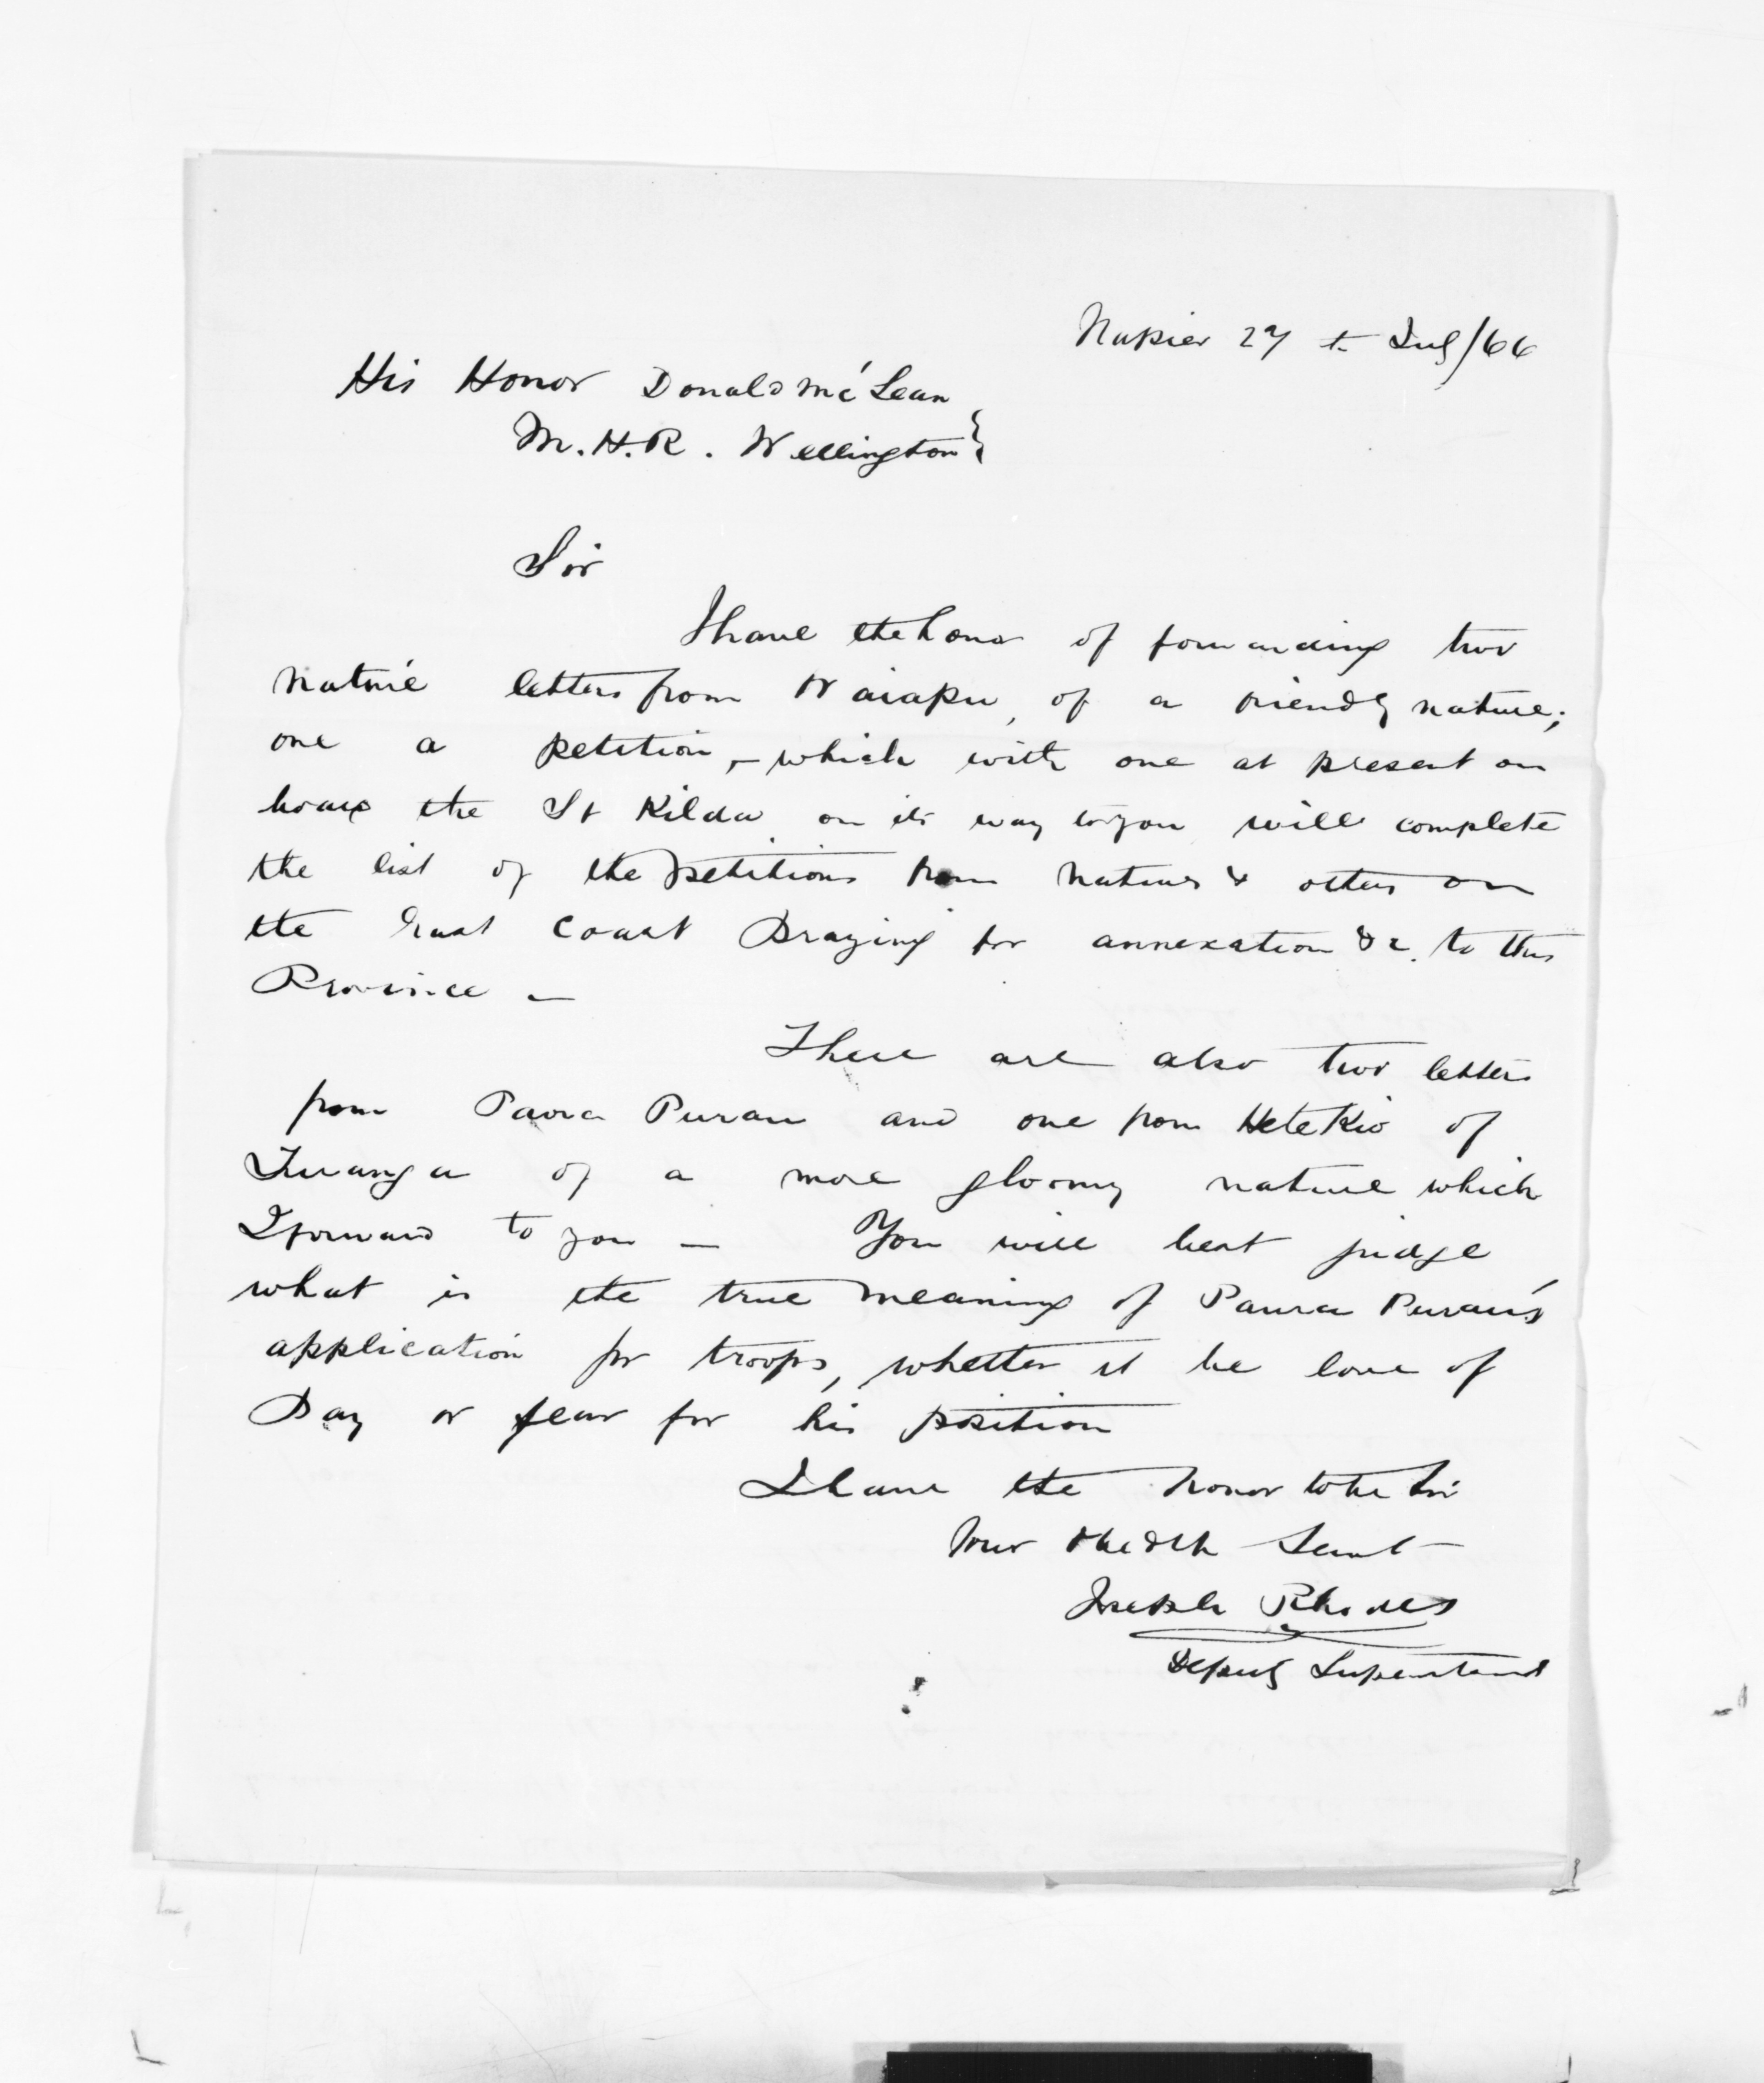 Napier 27th July/66
His Honor Donald McLean
M.H.R. Wellington }
Sir
I have the honor of forwarding two
native letters from Waiapu, of a friendly nature;
one a petition, - which with one at present on
board the St Kilda on its way to you will complete
the list of the petitions from Natives & others on
the East Coast Praying for annexation &c. to this
Province -
There are also two letters
from Paora Parau and one from Hetekio of
Turanga of a more gloomy nature which
I forward to you - You will best judge
what is the true meaning of Paora Parau's
application for troops, whether it be love of
Pay or fear for his position
I have the honor to be Sir
Your Obedt Servt
Joseph Rhodes
Deputy Superintend